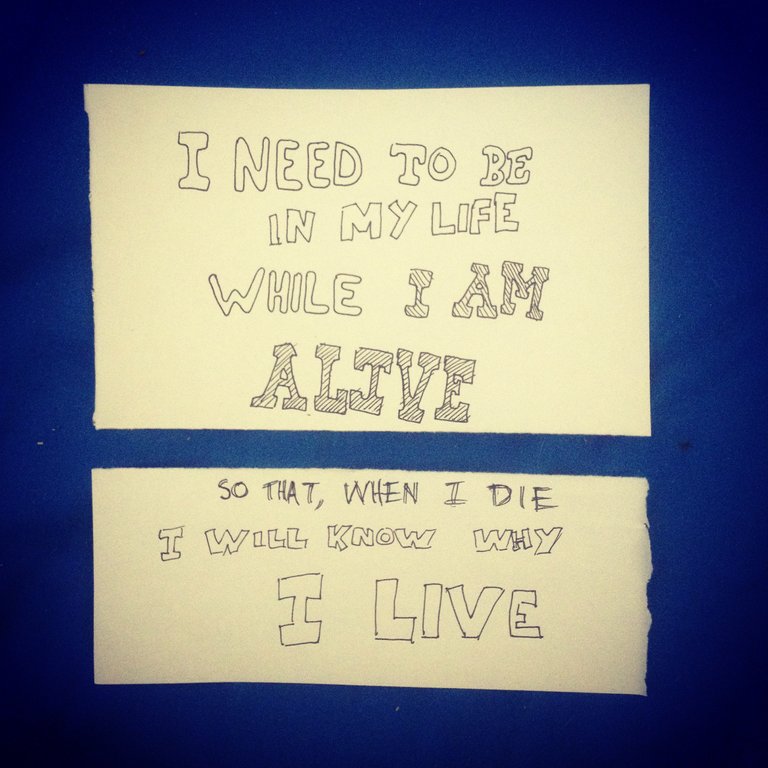 I NEED TO BE
IN MY LIFE
WHILE I AM
ALIVE
SO THAT, WHEN I DIE
I WILL KNOW WHY
I LIVE